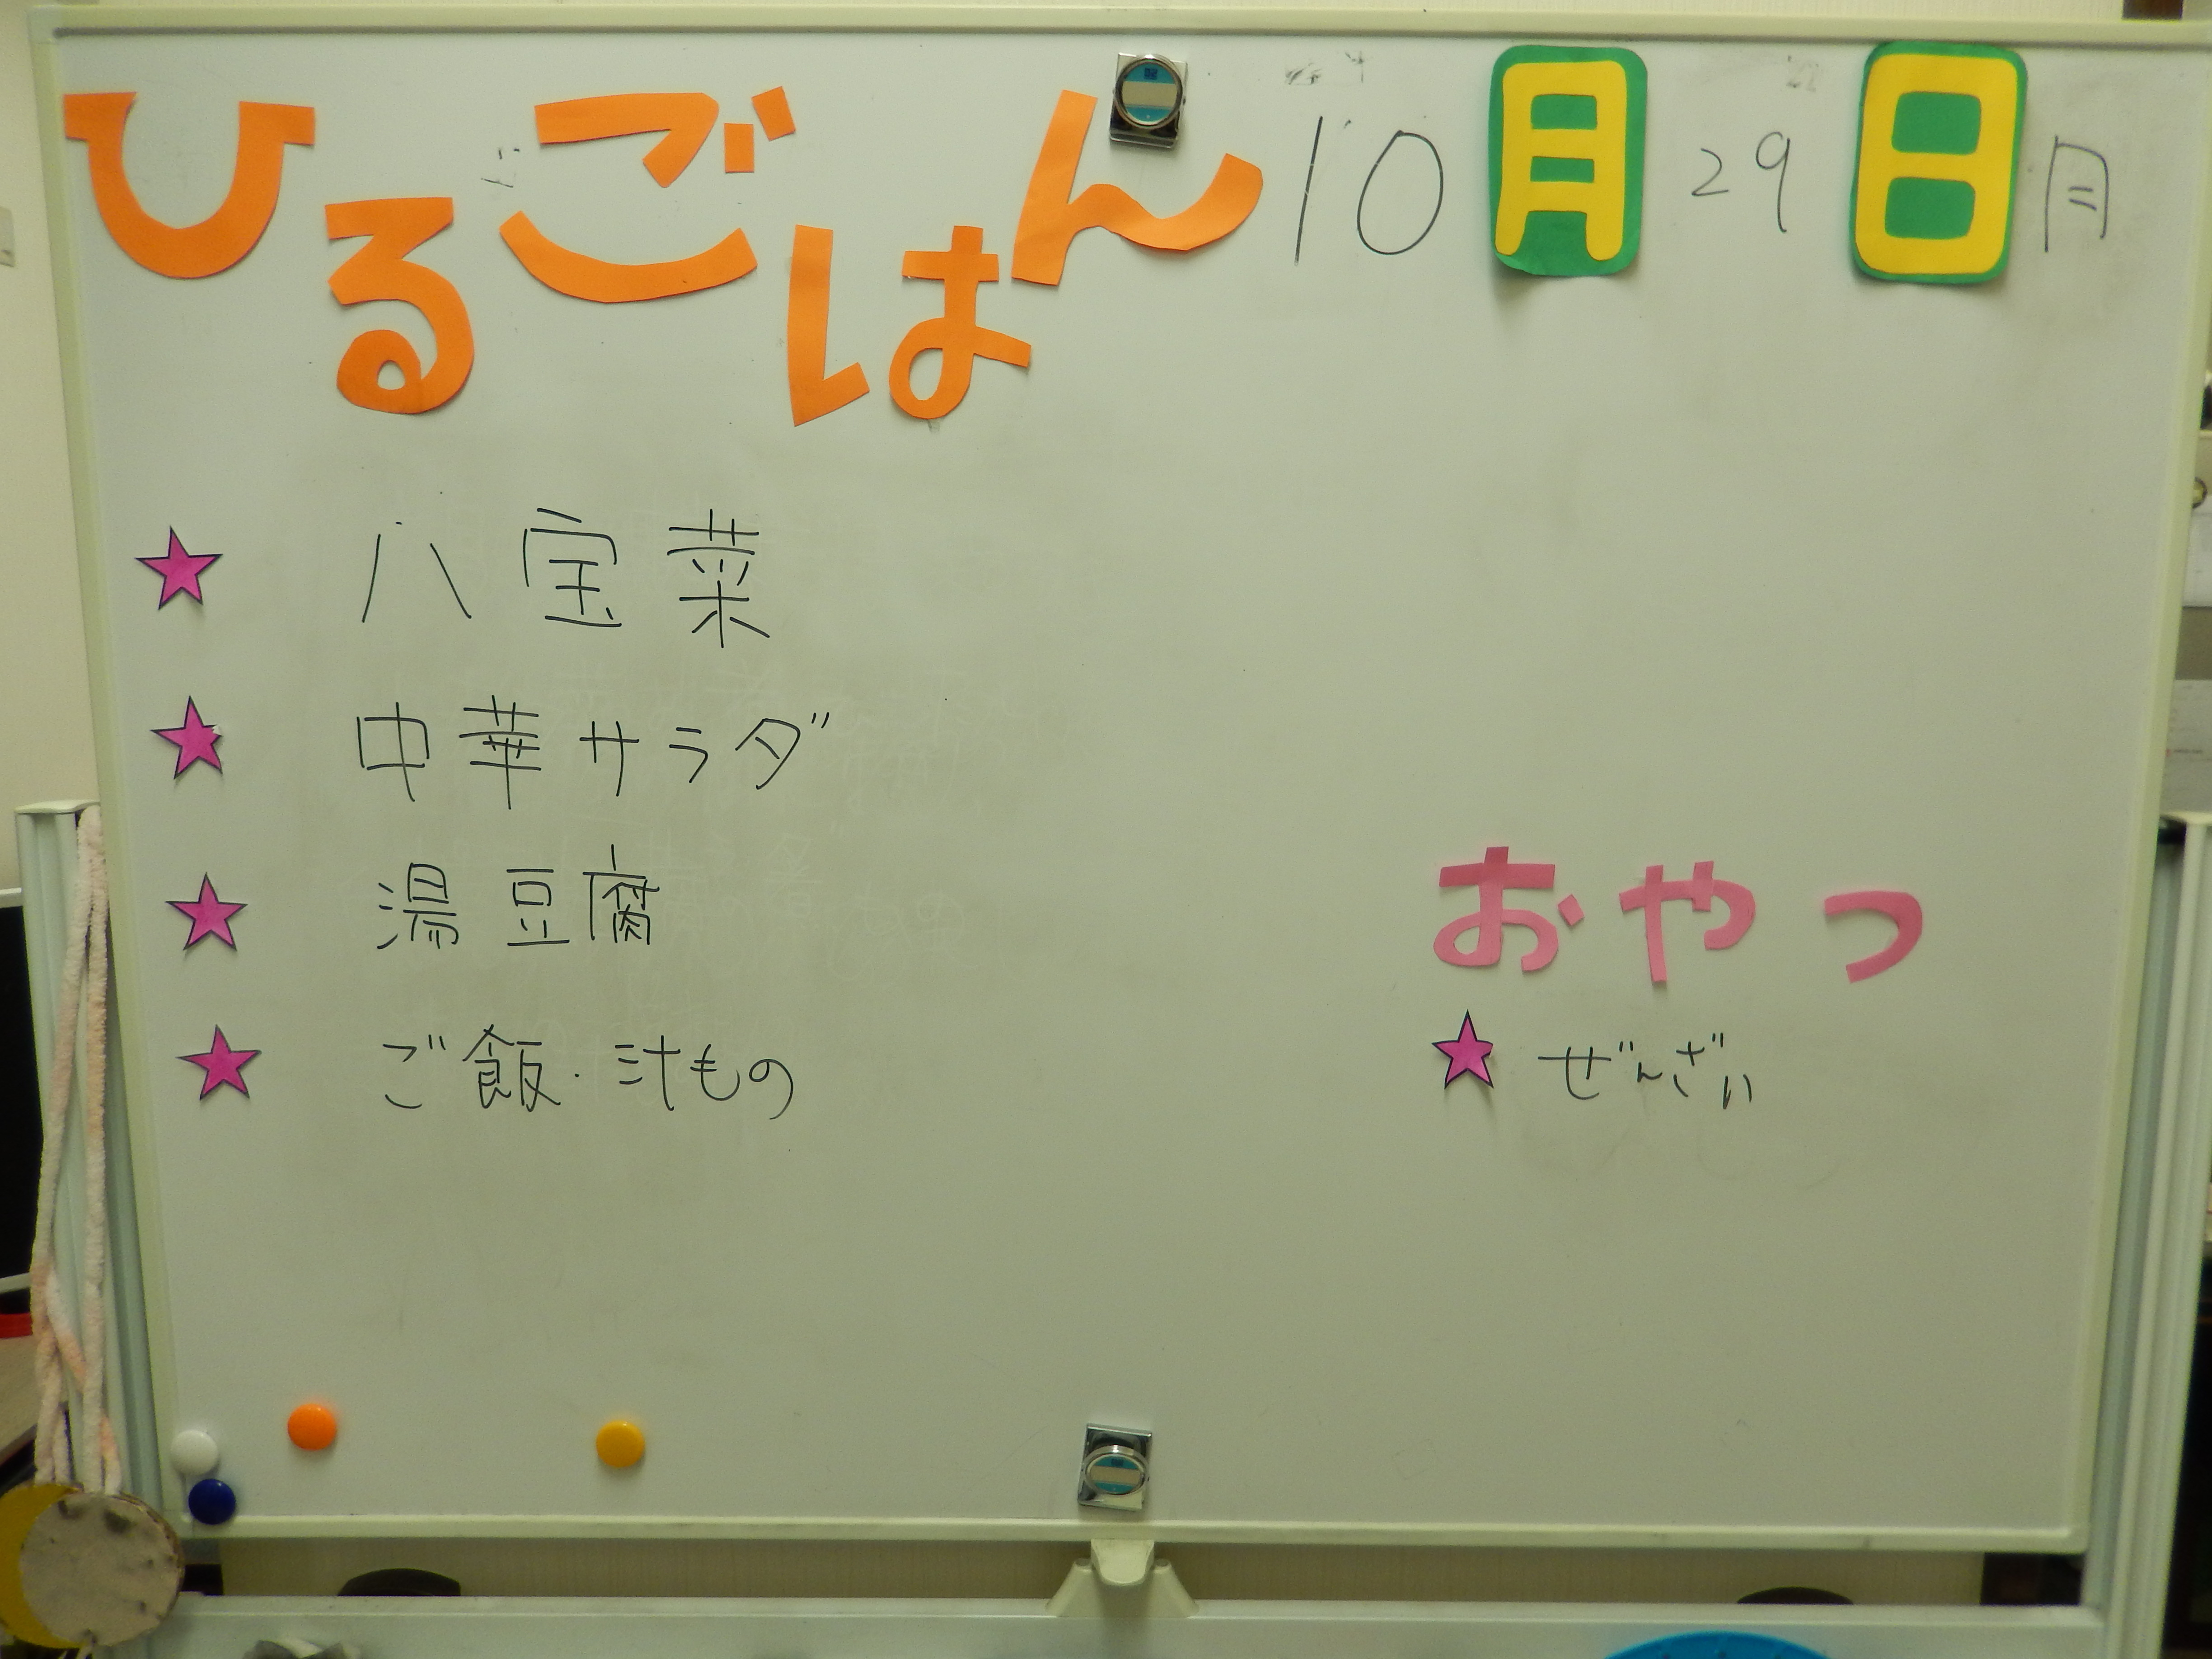 ひるごはん 10月29日 月
八宝菜
中華サラダ
湯豆腐
ご飯・汁もの
おやつ
ぜんざい